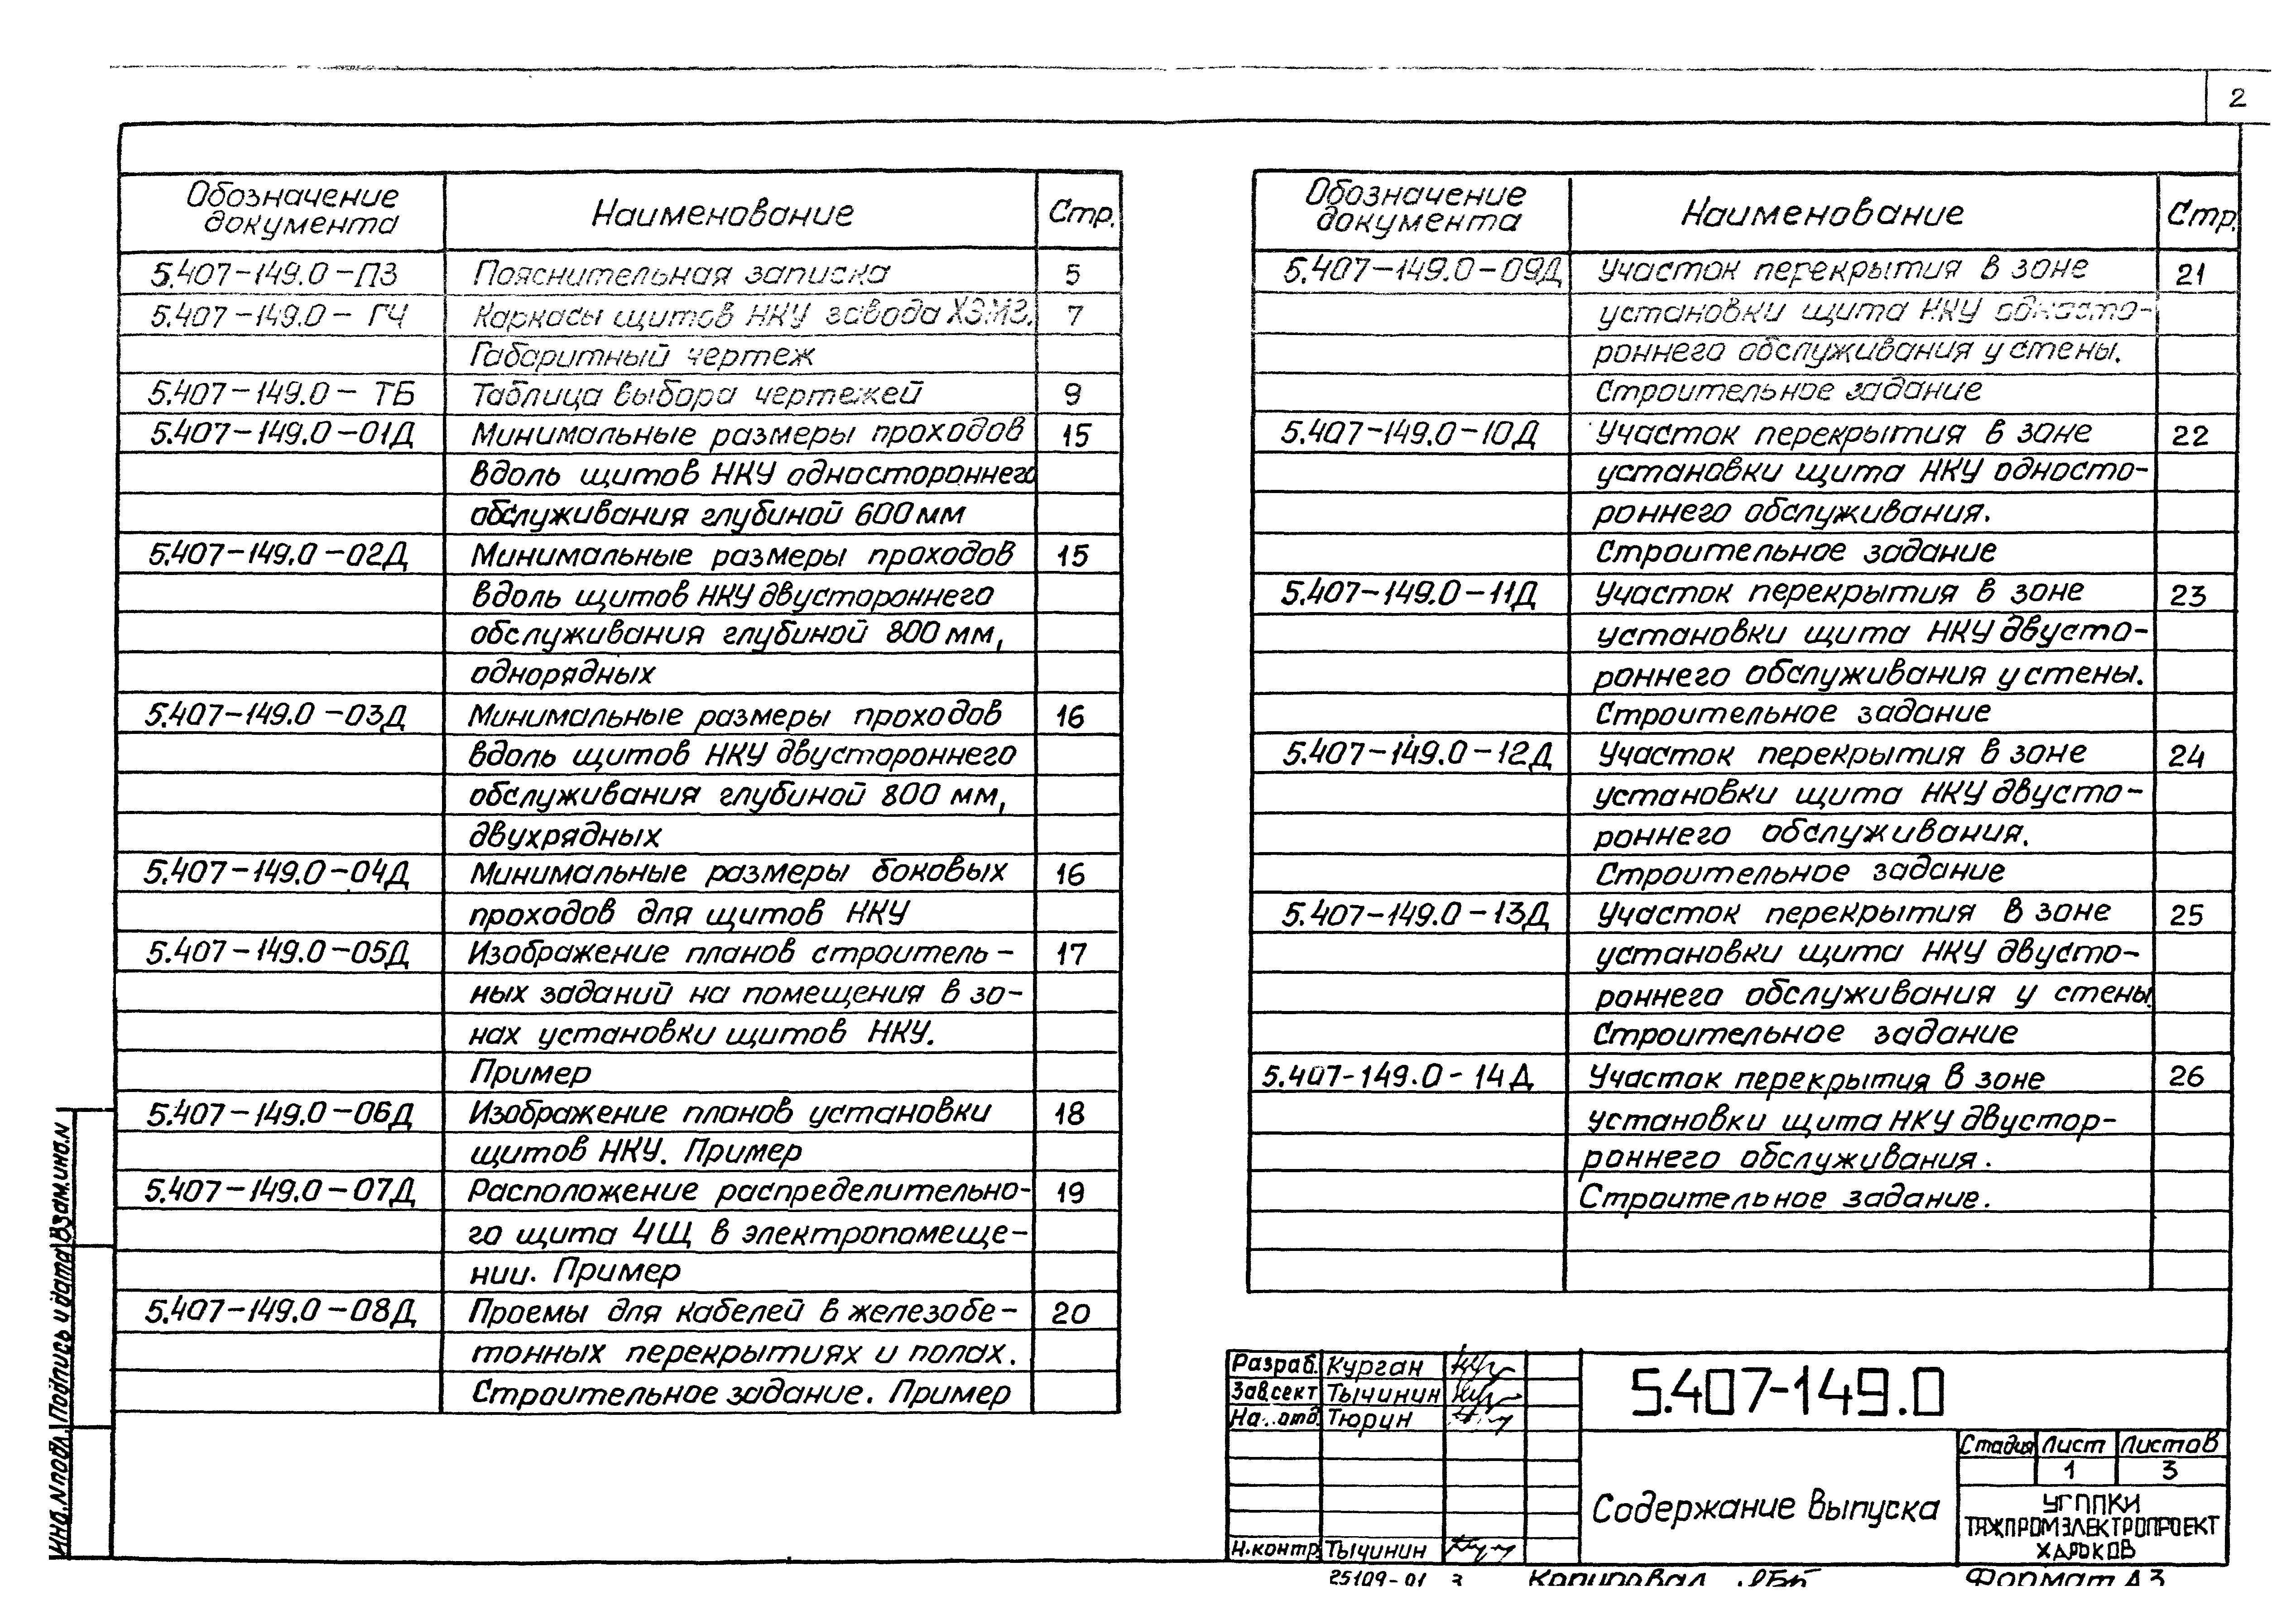 2
Обозначение документа Наименование Стр.
5.407-149.0-ПЗ Пояснительная записка 5
5.407-149.0-ГЧ Каркасы щитов НКУ завода ХЭМЗ. 7
Габаритный чертеж
5.407-149.0-ТБ Таблица выбора чертежей 9
5.407-149.0-01Д Минимальные размеры проходов 15
вдоль щитов НКУ одностороннего
обслуживания глубиной 600 мм
5.407-149.0-02Д Минимальные размеры проходов 15
вдоль щитов НКУ двустороннего
обслуживания глубиной 800 мм,
однорядных
5.407-149.0-03Д Минимальные размеры проходов 16
вдоль щитов НКУ двустороннего
обслуживания глубиной 800 мм,
двухрядных
5.407-149.0-04Д Минимальные размеры боковых 16
проходов для щитов НКУ
5.407-149.0-05Д Изображение планов строитель- 17
ных заданий на помещения в зо-
нах установки щитов НКУ.
Пример
5.407-149.0-06Д Изображение планов установки 18
щитов НКУ. Пример
5.407-149.0-07Д Расположение распределительно- 19
го щита 4Щ в электропомеще-
нии. Пример
5.407-149.0-08Д Проемы для кабелей в железобе- 20
тонных перекрытиях и полах.
Строительное задание. Пример
Обозначение документа Наименование Стр.
5.407-149.0-09Д Участок перекрытия в зоне 21
установки щита НКУ односто-
роннего обслуживания у стены.
Строительное задание
5.407-149.0-10Д Участок перекрытия в зоне 22
установки щита НКУ односто-
роннего обслуживания.
Строительное задание
5.407-149.0-11Д Участок перекрытия в зоне 23
установки щита НКУ двусто-
роннего обслуживания у стены.
Строительное задание
5.407-149.0-12Д Участок перекрытия в зоне 24
установки щита НКУ двусто-
роннего обслуживания.
Строительное задание
5.407-149.0-13Д Участок перекрытия в зоне 25
установки щита НКУ двусто-
роннего обслуживания у стены.
Строительное задание
5.407-149.0-14Д Участок перекрытия в зоне 26
установки щита НКУ двустор-
роннего обслуживания.
Строительное задание.
Разраб. Курган
Зав.сект Тычинин
На. отд. Тюрин
Н.контр. Тычинин
5.407-149.0
Содержание выпуска
Стадия Лист Листов
1 3
УГППКИ
ТЯЖПРОМЭЛЕКТРОПРОЕКТ
ХАРЬКОВ
Инв.N подл. Подпись и дата Взам.инв.N
25109-01 3 Копировал Формат А3